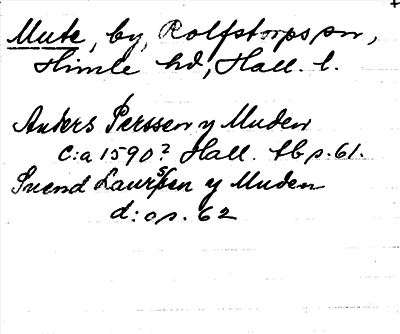 Mute, by, Rolfstorps sn,
Himle hd, Hall. l.
Anders Perssen y Muden
c:a 1590? Hall. tb s. 61.
Suend Laurssen y Muden
d:o s. 62